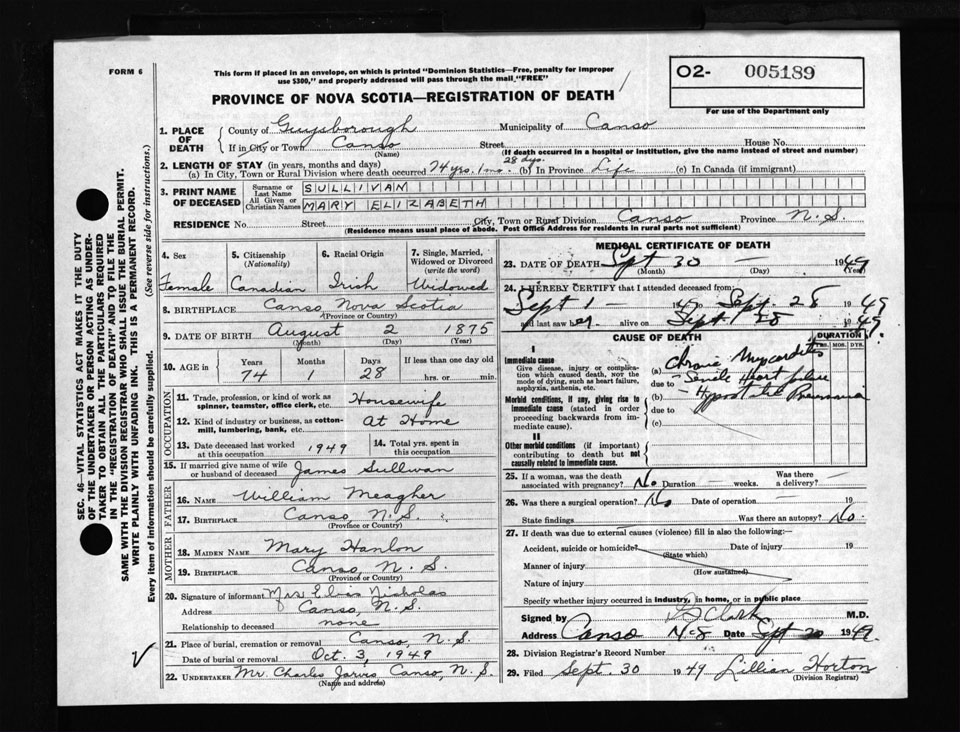 FORM 6
This form if placed in an envelope, on which is printed "Dominion Statistics—Free, penalty for improper
use $300," and properly addressed will pass through the mail "FREE"
O2- 005189
For use of the Department only
PROVINCE OF NOVA SCOTIA—REGISTRATION OF DEATH
1. PLACE OF DEATH
County of Guysborough Municipality of Canso
If in City or Town Canso Street House No.
(Name) (If death occurred in a hospital or institution, give the name instead of street and number)
2. LENGTH OF STAY (in years, months and days)
(a) In City, Town or Rural Division where death occurred 74 yrs. 1 mo. 28 dys. (b) In Province Life (c) In Canada (if immigrant)
3. PRINT NAME OF DECEASED
Surname or Last Name SULLIVAN
All Given or Christian Names MARY ELIZABETH
RESIDENCE No. Street City, Town or Rural Division Canso Province N.S.
(Residence means usual place of abode. Post Office Address for residents in rural parts not sufficient)
4. Sex
Female
5. Citizenship (Nationality)
Canadian
6. Racial Origin
Irish
7. Single, Married, Widowed or Divorced (write the word)
Widowed
8. BIRTHPLACE Canso Nova Scotia
(Province or Country)
9. DATE OF BIRTH August 2 1875
(Month) (Day) (Year)
10. AGE in Years Months Days If less than one day old
74 1 28 hrs. or min.
OCCUPATION
11. Trade, profession, or kind of work as spinner, teamster, office clerk, etc. Housewife
12. Kind of industry or business, as cotton-mill, lumbering, bank, etc. At Home
13. Date deceased last worked at this occupation 1949
14. Total yrs. spent in this occupation
15. If married give name of wife or husband of deceased James Sullivan
FATHER
16. NAME William Meagher
17. BIRTHPLACE Canso N.S.
(Province or Country)
MOTHER
18. MAIDEN NAME Mary Hanlon
19. BIRTHPLACE Canso, N.S.
(Province or Country)
20. Signature of informant Mrs Nicholas
Address Canso, N.S.
Relationship to deceased none
21. Place of burial, cremation or removal Canso, N.S.
Date of burial or removal Oct. 3, 1949
22. UNDERTAKER Mr. Charles Jarvis Canso, N.S.
(Name and address)
MEDICAL CERTIFICATE OF DEATH
23. DATE OF DEATH Sept 30 1949
(Month) (Day) (Year)
24. I HEREBY CERTIFY that I attended deceased from:
Sept 1 – 49 to Sept. 28 1949
and last saw her alive on Sept. 28 1949
CAUSE OF DEATH
DURATION
YRS. MOS. DYS.
I
Immediate cause
Give disease, injury or complication which caused death, not the mode of dying, such as heart failure, asphyxia, asthenia, etc.
Morbid conditions, if any, giving rise to immediate cause (stated in order proceeding backwards from immediate cause).
II
Other morbid conditions (if important) contributing to death but not causally related to immediate cause.
(a) Chronic Myocarditis
due to Senile Heart failure
(b) Hypostatic Pneumonia
due to
(c)
25. If a woman, was the death associated with pregnancy? No Duration — weeks. Was there a delivery? —
26. Was there a surgical operation? No Date of operation — 19
State findings Was there an autopsy? No.
27. If death was due to external causes (violence) fill in also the following:
Accident, suicide or homicide? Date of injury 19
(State which)
Manner of injury
(How sustained)
Nature of injury
Specify whether injury occurred in industry, in home, or in public place
Signed by Clark M.D.
Address Canso N.S Date Sept 30 1949
28. Division Registrar's Record Number
29. Filed Sept. 30 1949 Lillian Horton
(Division Registrar)
SEC. 46—VITAL STATISTICS ACT MAKES IT THE DUTY
OF THE UNDERTAKER OR PERSON ACTING AS UNDER-
TAKER TO OBTAIN ALL THE PARTICULARS REQUIRED
IN THE "REGISTRATION OF DEATH" AND TO FILE THE
SAME WITH THE DIVISION REGISTRAR WHO SHALL ISSUE THE BURIAL PERMIT.
WRITE PLAINLY WITH UNFADING INK. THIS IS A PERMANENT RECORD.
Every item of information should be carefully supplied. (See reverse side for instructions.)